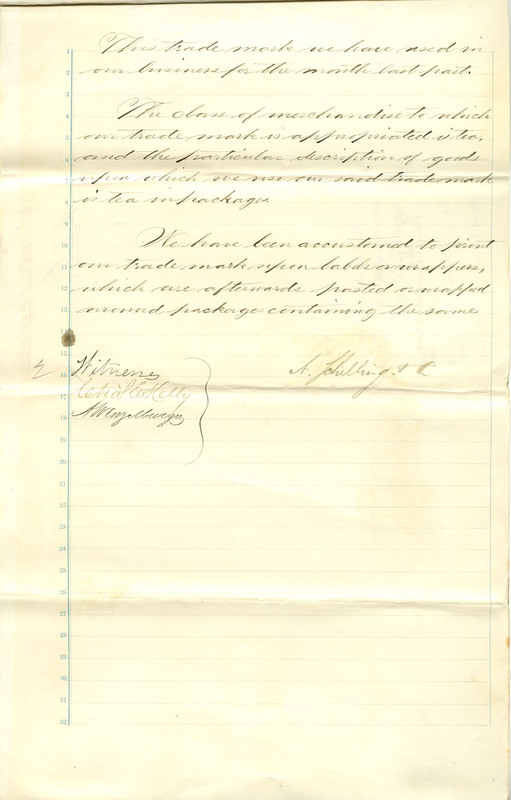 1
2
3
4
5
6
7
8
9
10
11
12
13
14
15
16
17
18
19
20
21
22
23
24
25
26
27
28
29
30
31
32
This trade mark we have used in
our business for the month last past.
The class of merchandise to which
our trade mark is appropriated is tea,
and the particular description of goods
upon which we use our said trade mark
is tea in packages.
We have been accustomed to print
our trade mark upon labels or wrappers,
which are afterwards pasted or wrapped
around packages containing the same
Witnesses
Kelly
A. Schilling & Co